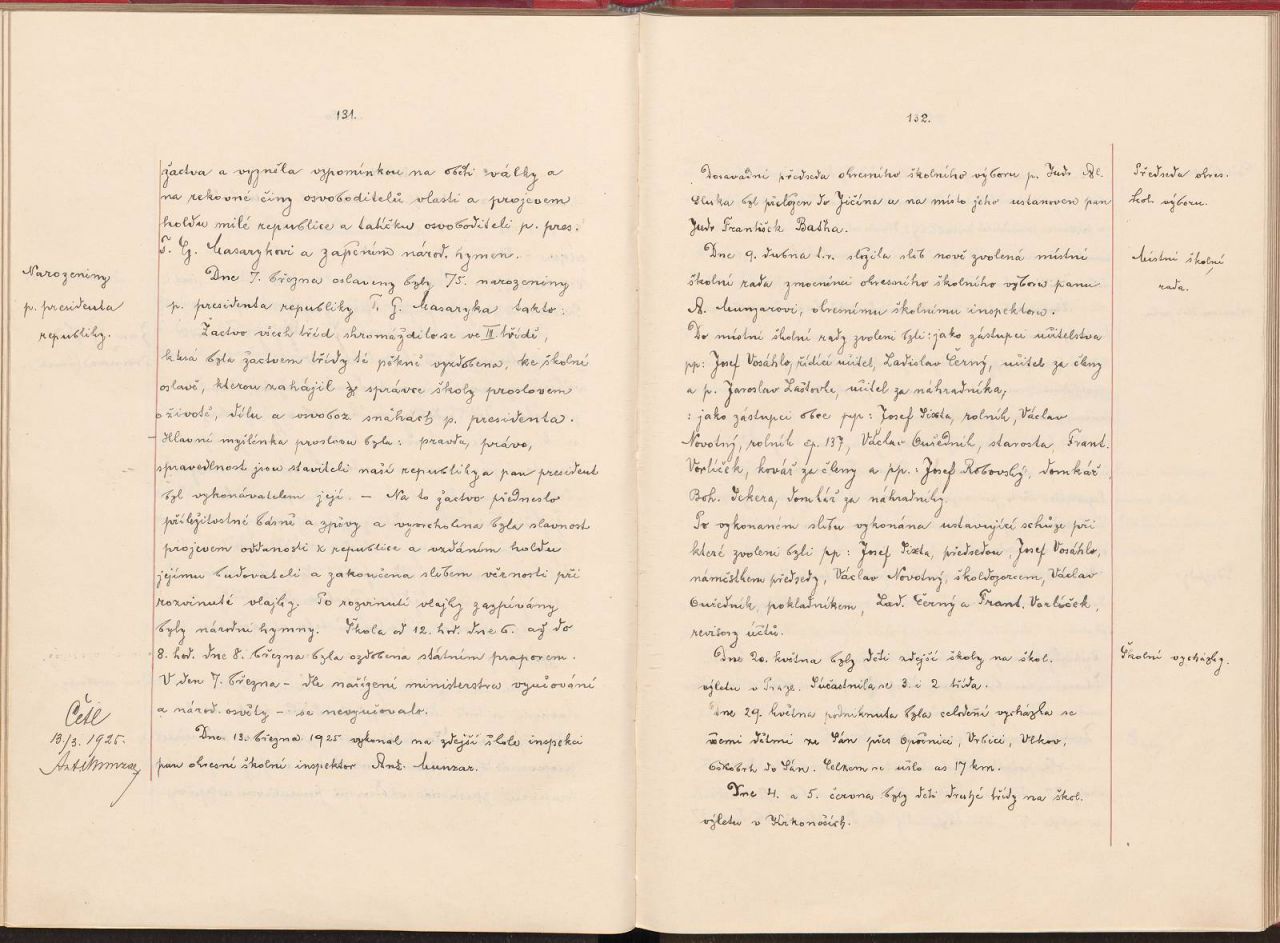 131.
žactva a vyzněla vzpomínkou na oběti války a
na rekovné činy osvoboditelů vlasti a projevem
holdu milé republice a tatíčku osvoboditeli p. pres.
T. G. Masarykovi a zapěním národ. hymen.
Narozeniny
p. presidenta
republiky.
Dne 7. března oslaveny byly 75. narozeniny
p. presidenta republiky T. G. Masaryka takto:
Žactvo všech tříd, shromáždilo se ve III třídě,
která byla žactvem třídy té pěkně vyzdobena, ke školní
oslavě, kterou zahájil správce školy proslovem
o životě, dílu a osvoboz snahách p. presidenta.
Hlavní myšlénka proslovu byla: pravda, právo,
spravedlnost jsou staviteli naší republiky a pan president
byl vykonávatelem její. – Na to žactvo předneslo
příležitostné básně a zpěvy a vyvrcholena byla slavnost
projevem oddanosti k republice a vzdáním holdu
jejímu budovateli a zakončena slibem věrnosti při
rozvinuté vlajky. Po rozvinutí vlajky zazpívány
byly národní hymny. Škola od 12. hod. dne 6. až do
8. hod. dne 8. března byla ozdobena státním praporem.
V den 7. března – dle nařízení ministerstva vyučování
a národ. osvěty – se nevyučovalo.
Dne 13. března 1925 vykonal na zdejší škole inspekci
pan okresní školní inspektor Ant. Munzar.
Četl
13./3. 1925.
Ant. Munzar
132.
Dosavadní předseda okresního školního výboru p. Judr Al.
Sluka byl přeložen do Jičína a na místo jeho ustanoven pan
Judr František Baťha.
Předseda okres.
škol. výboru.
Dne 9. dubna t.r. složila slib nově zvolená místní
školní rada zmocněnci okresního školního výboru panu
A. Munzarovi, okresnímu školnímu inspektoru.
Místní školní
rada.
Do místní školní rady zvoleni byli: jako zástupci učitelstva
pp: Josef Vosáhlo, řídící učitel, Ladislav Černý, učitel za členy
a p. Jaroslav Laštovka, učitel za náhradníka;
: jako zástupci obce pp: Josef Sixta, rolník, Václav
Novotný, rolník čp. 137, Václav Ouředník, starosta, Frant.
Vorlíček, kovář za členy a pp.: Josef Robovský, domkář
Boh. Sekera, domkář za náhradníky.
Po vykonaném slibu vykonána ustavující schůze při
které zvoleni byli pp: Josef Sixta, předsedou, Josef Vosáhlo,
náměstkem předsedy, Václav Novotný, školdozorcem, Václav
Ouředník, pokladníkem, Lad. Černý a Frant. Vorlíček,
revisory účtů.
Dne 20. května byly děti zdejší školy na škol.
výletu v Praze. Súčastnila se 3. i 2 třída.
Školní vycházky.
Dne 29. května podniknuta byla celodení vycházka se
všemi dětmi ze Sán přes Opočnici, Vrbici, Vlkov,
do Sán. Celkem se ušlo as 17 km.
Dne 4. a 5. června byly děti druhé třídy na škol.
výletu v Krkonoších.